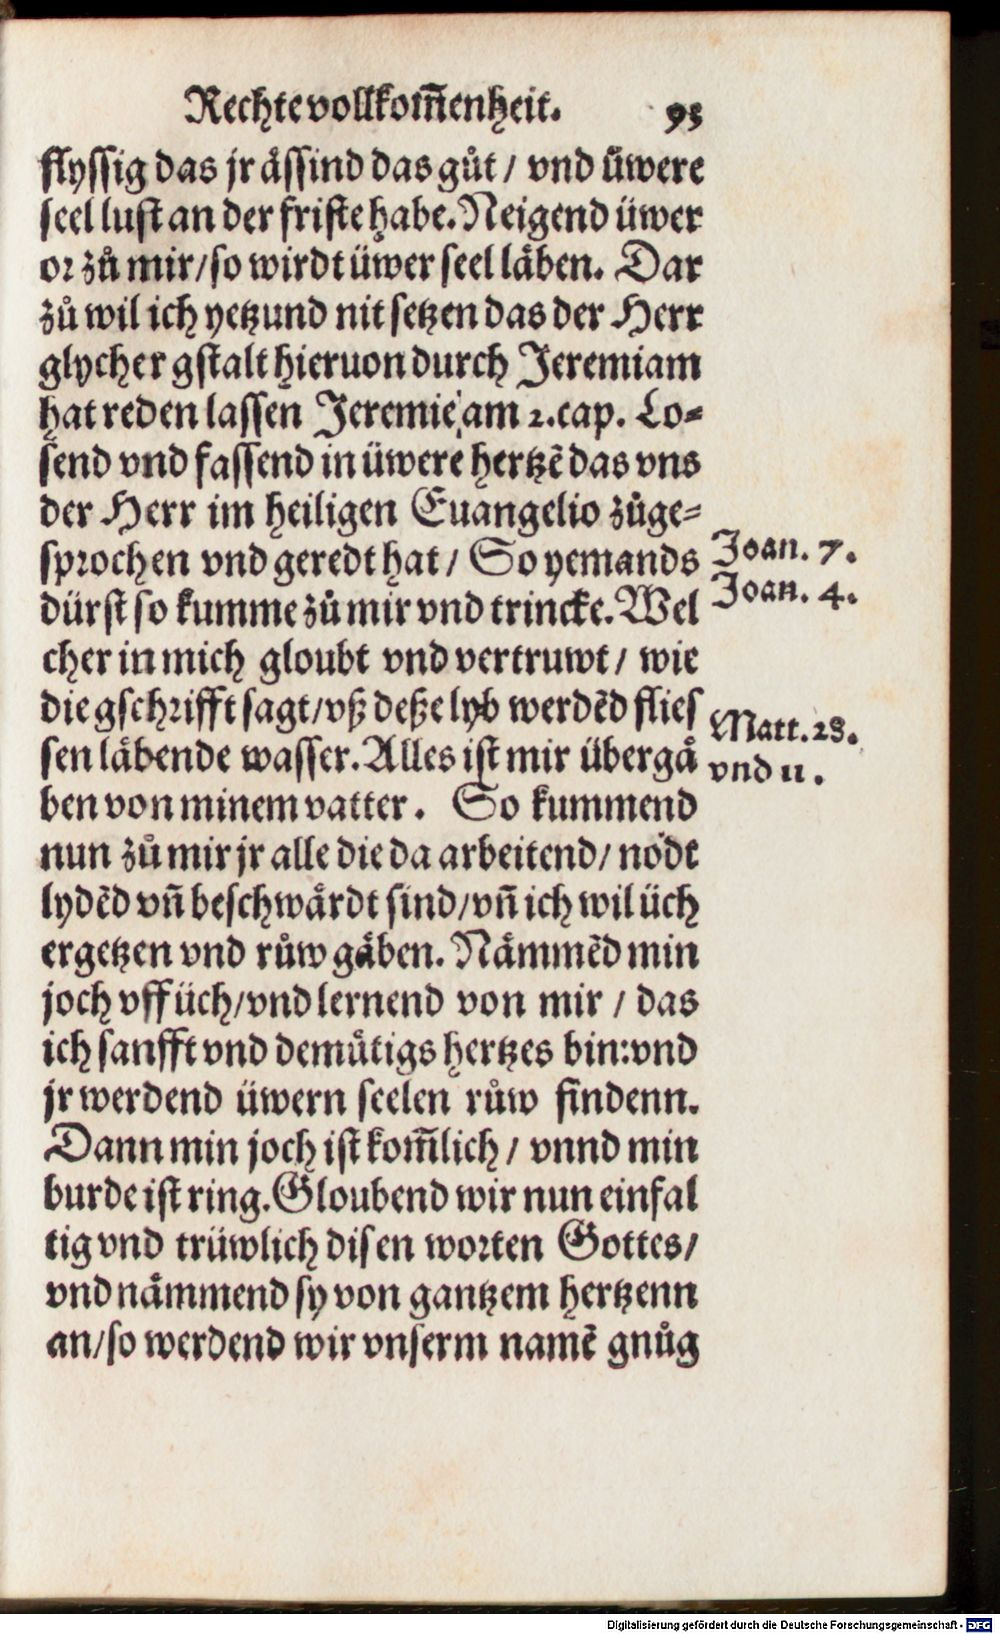 Rechte vollkom̃enheit. 95
flyssig das jr åssind das gůt / vnd üwere
seel lust an der friste habe. Neigend üwer
or zů mir / so wirdt üwer seel låben. Dar
zů wil ich yetzund nit setzen das der Herr
glycher gstalt hieruon durch Jeremiam
hat reden lassen Jeremie am 2. cap. Lo⸗
send vnd fassend in üwere hertzẽ das vns
der Herr im heiligen Euangelio zůge⸗
sprochen vnd geredt hat / So yemands
Joan. 7.
dürst so kumme zů mir vnd trincke. Wel
Joan. 4.
cher in mich gloubt vnd vertruwt / wie
die gschrifft sagt / vß deße lyb werdẽd flies
Matt. 28.
sen låbende wasser. Alles ist mir übergå
vnd 11.
ben von minem vatter. So kummend
nun zů mir jr alle die da arbeitend / nödt
lydẽd vñ beschwårdt sind / vñ ich wil üch
ergetzen vnd růw gåben. Nåmmẽd min
joch vff üch / vnd lernend von mir / das
ich sanfft vnd demůtigs hertzes bin: vnd
jr werdend üwern seelen růw findenn.
Dann min joch ist kom̃lich / vnnd min
burde ist ring. Gloubend wir nun einfal
tig vnd trüwlich disen worten Gottes /
vnd nåmmend sy von gantzem hertzenn
an / so werdend wir vnserm namẽ gnůg
Digitalisierung gefördert durch die Deutsche Forschungsgemeinschaft - DFG